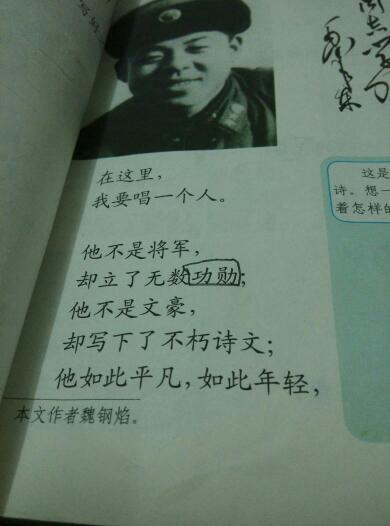 同志学习
毛泽东
在这里，
我要唱一个人。
他不是将军，
却立了无数功勋；
他不是文豪，
却写下了不朽诗文；
他如此平凡，如此年轻，
本文作者魏钢焰。
这是
诗。想一
着怎样的